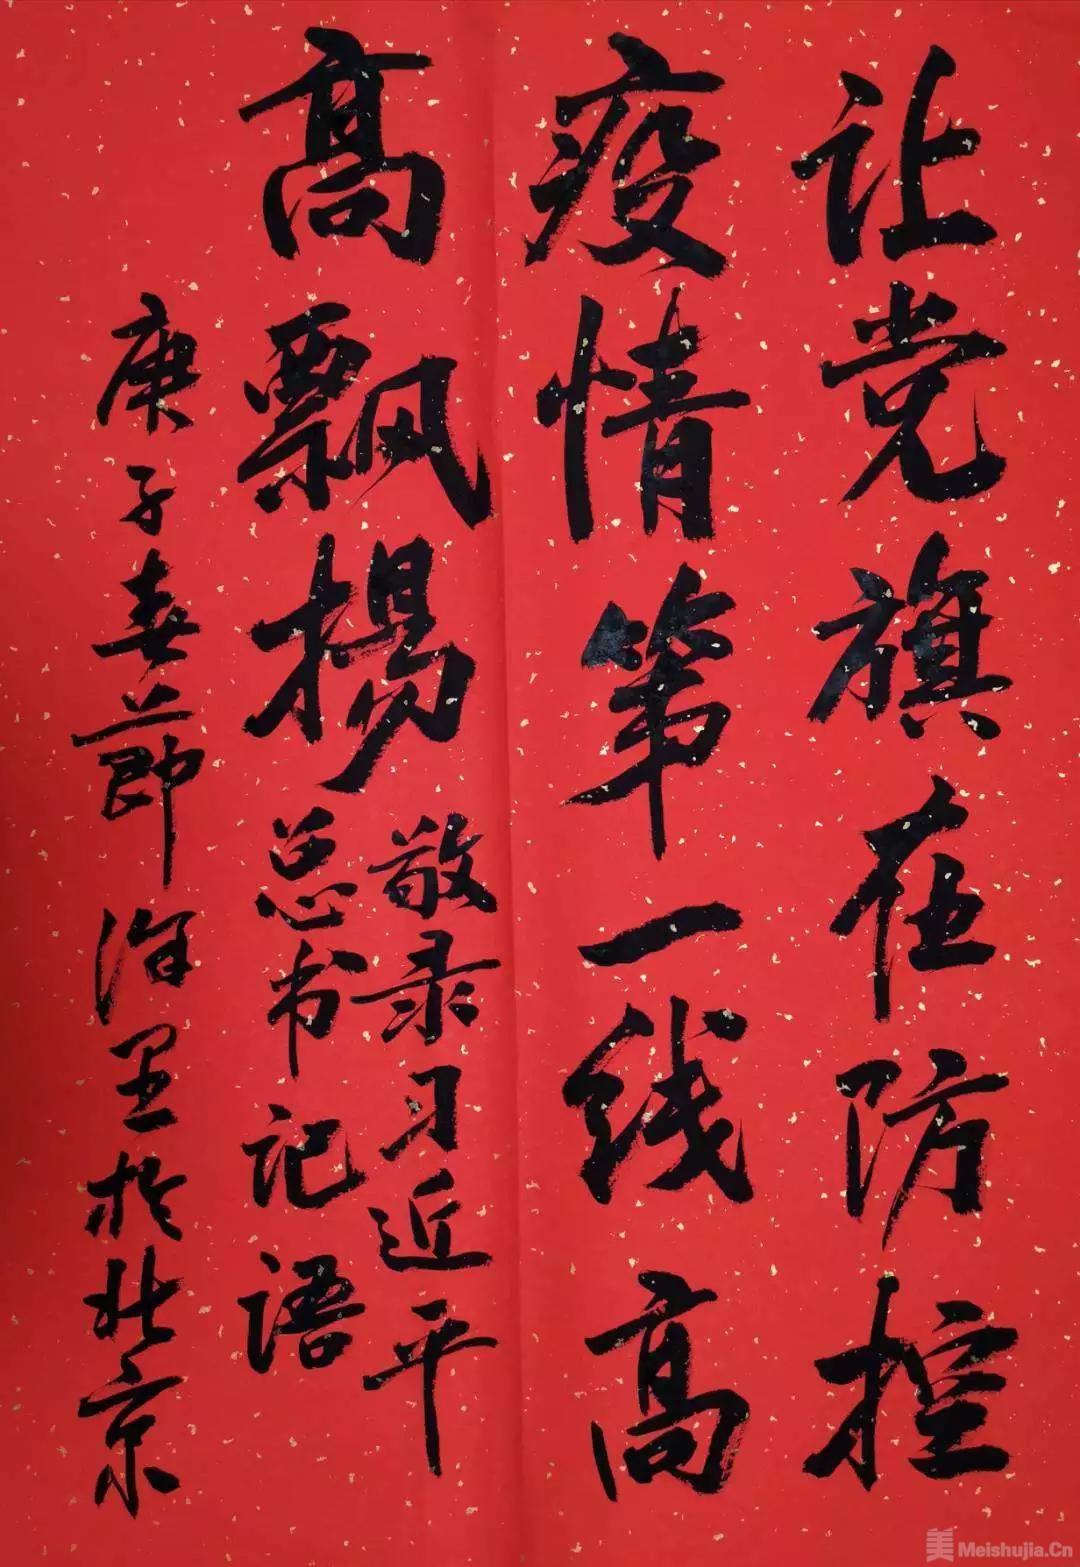 让党旗在防控
疫情第一线高
高飘揚
敬录习近平
总书记语
庚子春节徐里於北京
美 Meishujia.Cn